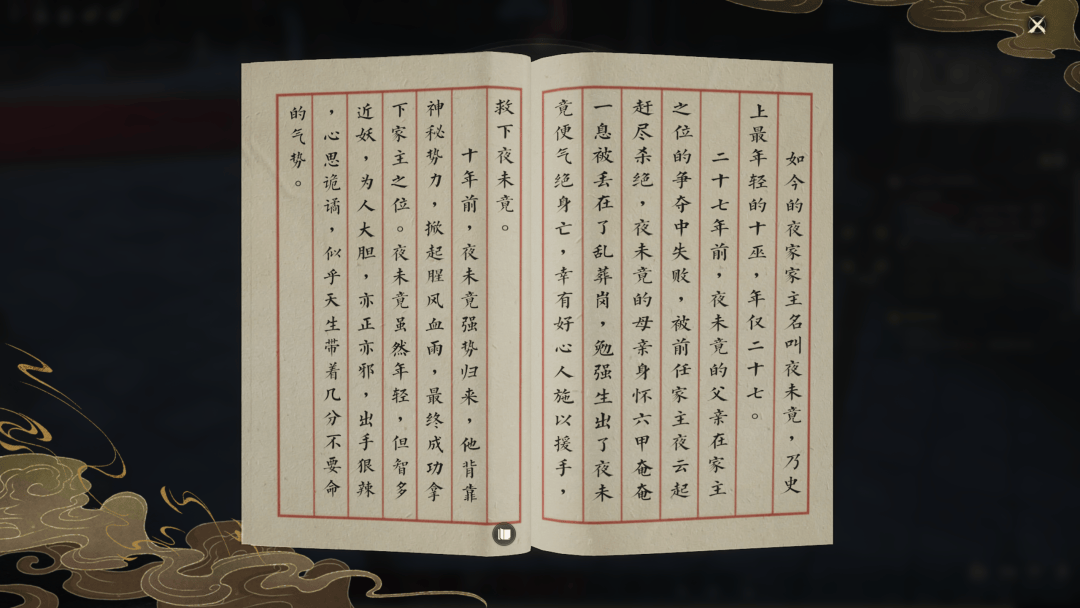 如今的夜家家主名叫夜未竟，乃史
上最年轻的十巫，年仅二十七。
二十七年前，夜未竟的父亲在家主
之位的争夺中失败，被前任家主夜云起
赶尽杀绝，夜未竟的母亲身怀六甲奄奄
一息被丢在了乱葬岗，勉强生出了夜未
竟便气绝身亡，幸有好心人施以援手，
救下夜未竟。
十年前，夜未竟强势归来，他背靠
神秘势力，掀起腥风血雨，最终成功拿
下家主之位。夜未竟虽然年轻，但智多
近妖，为人大胆，亦正亦邪，出手狠辣
，心思诡谲，似乎天生带着几分不要命
的气势。